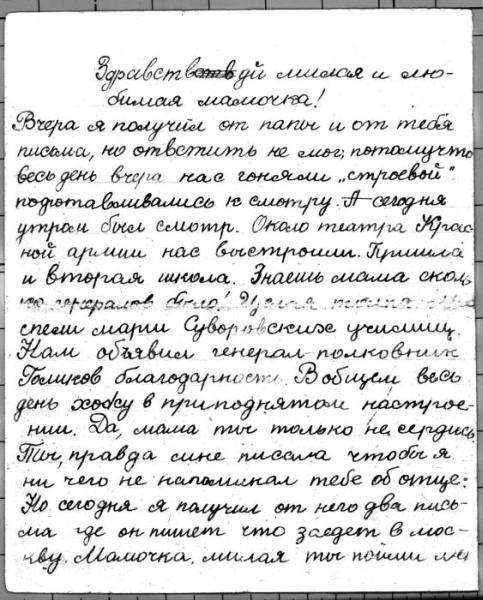 Здравствуй милая и лю-
бимая мамочка!
Вчера я получил от папы и от тебя
письма, но ответить не мог; потомучто
весь день вчера нас гоняли „строевой"
подготавливались к смотру. А сегодня
утром был смотр. Около театра Крас
ной армии нас выстроили. Пришла
и вторая школа. Знаешь мама сколь
ко генералов было!
спели марш Суворовских училищ.
Нам объявил генерал-полковник
Голиков благодарность. Вобщем весь
день хожу в приподнятом настрое-
нии. Да, мама ты только не сердись
Ты, правда мне писала чтобы я
ни чего не напоминал тебе об отце.
Но сегодня я получил от него два пись-
ма где он пишет что заедет в мос-
кву. Мамочка, милая ты пойми